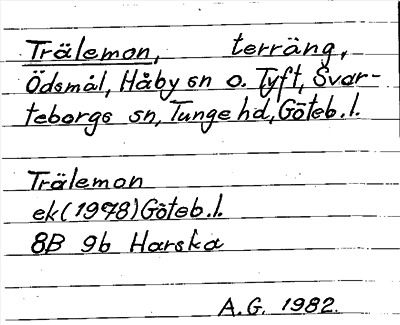 Trälemon, terräng,
Ödsmål, Håby sn o. Tyft, Svar-
teborgs sn, Tunge hd, Göteb. l.
Trälemon
ek (1978) Göteb. l.
8B 9b Harska
A.G. 1982.